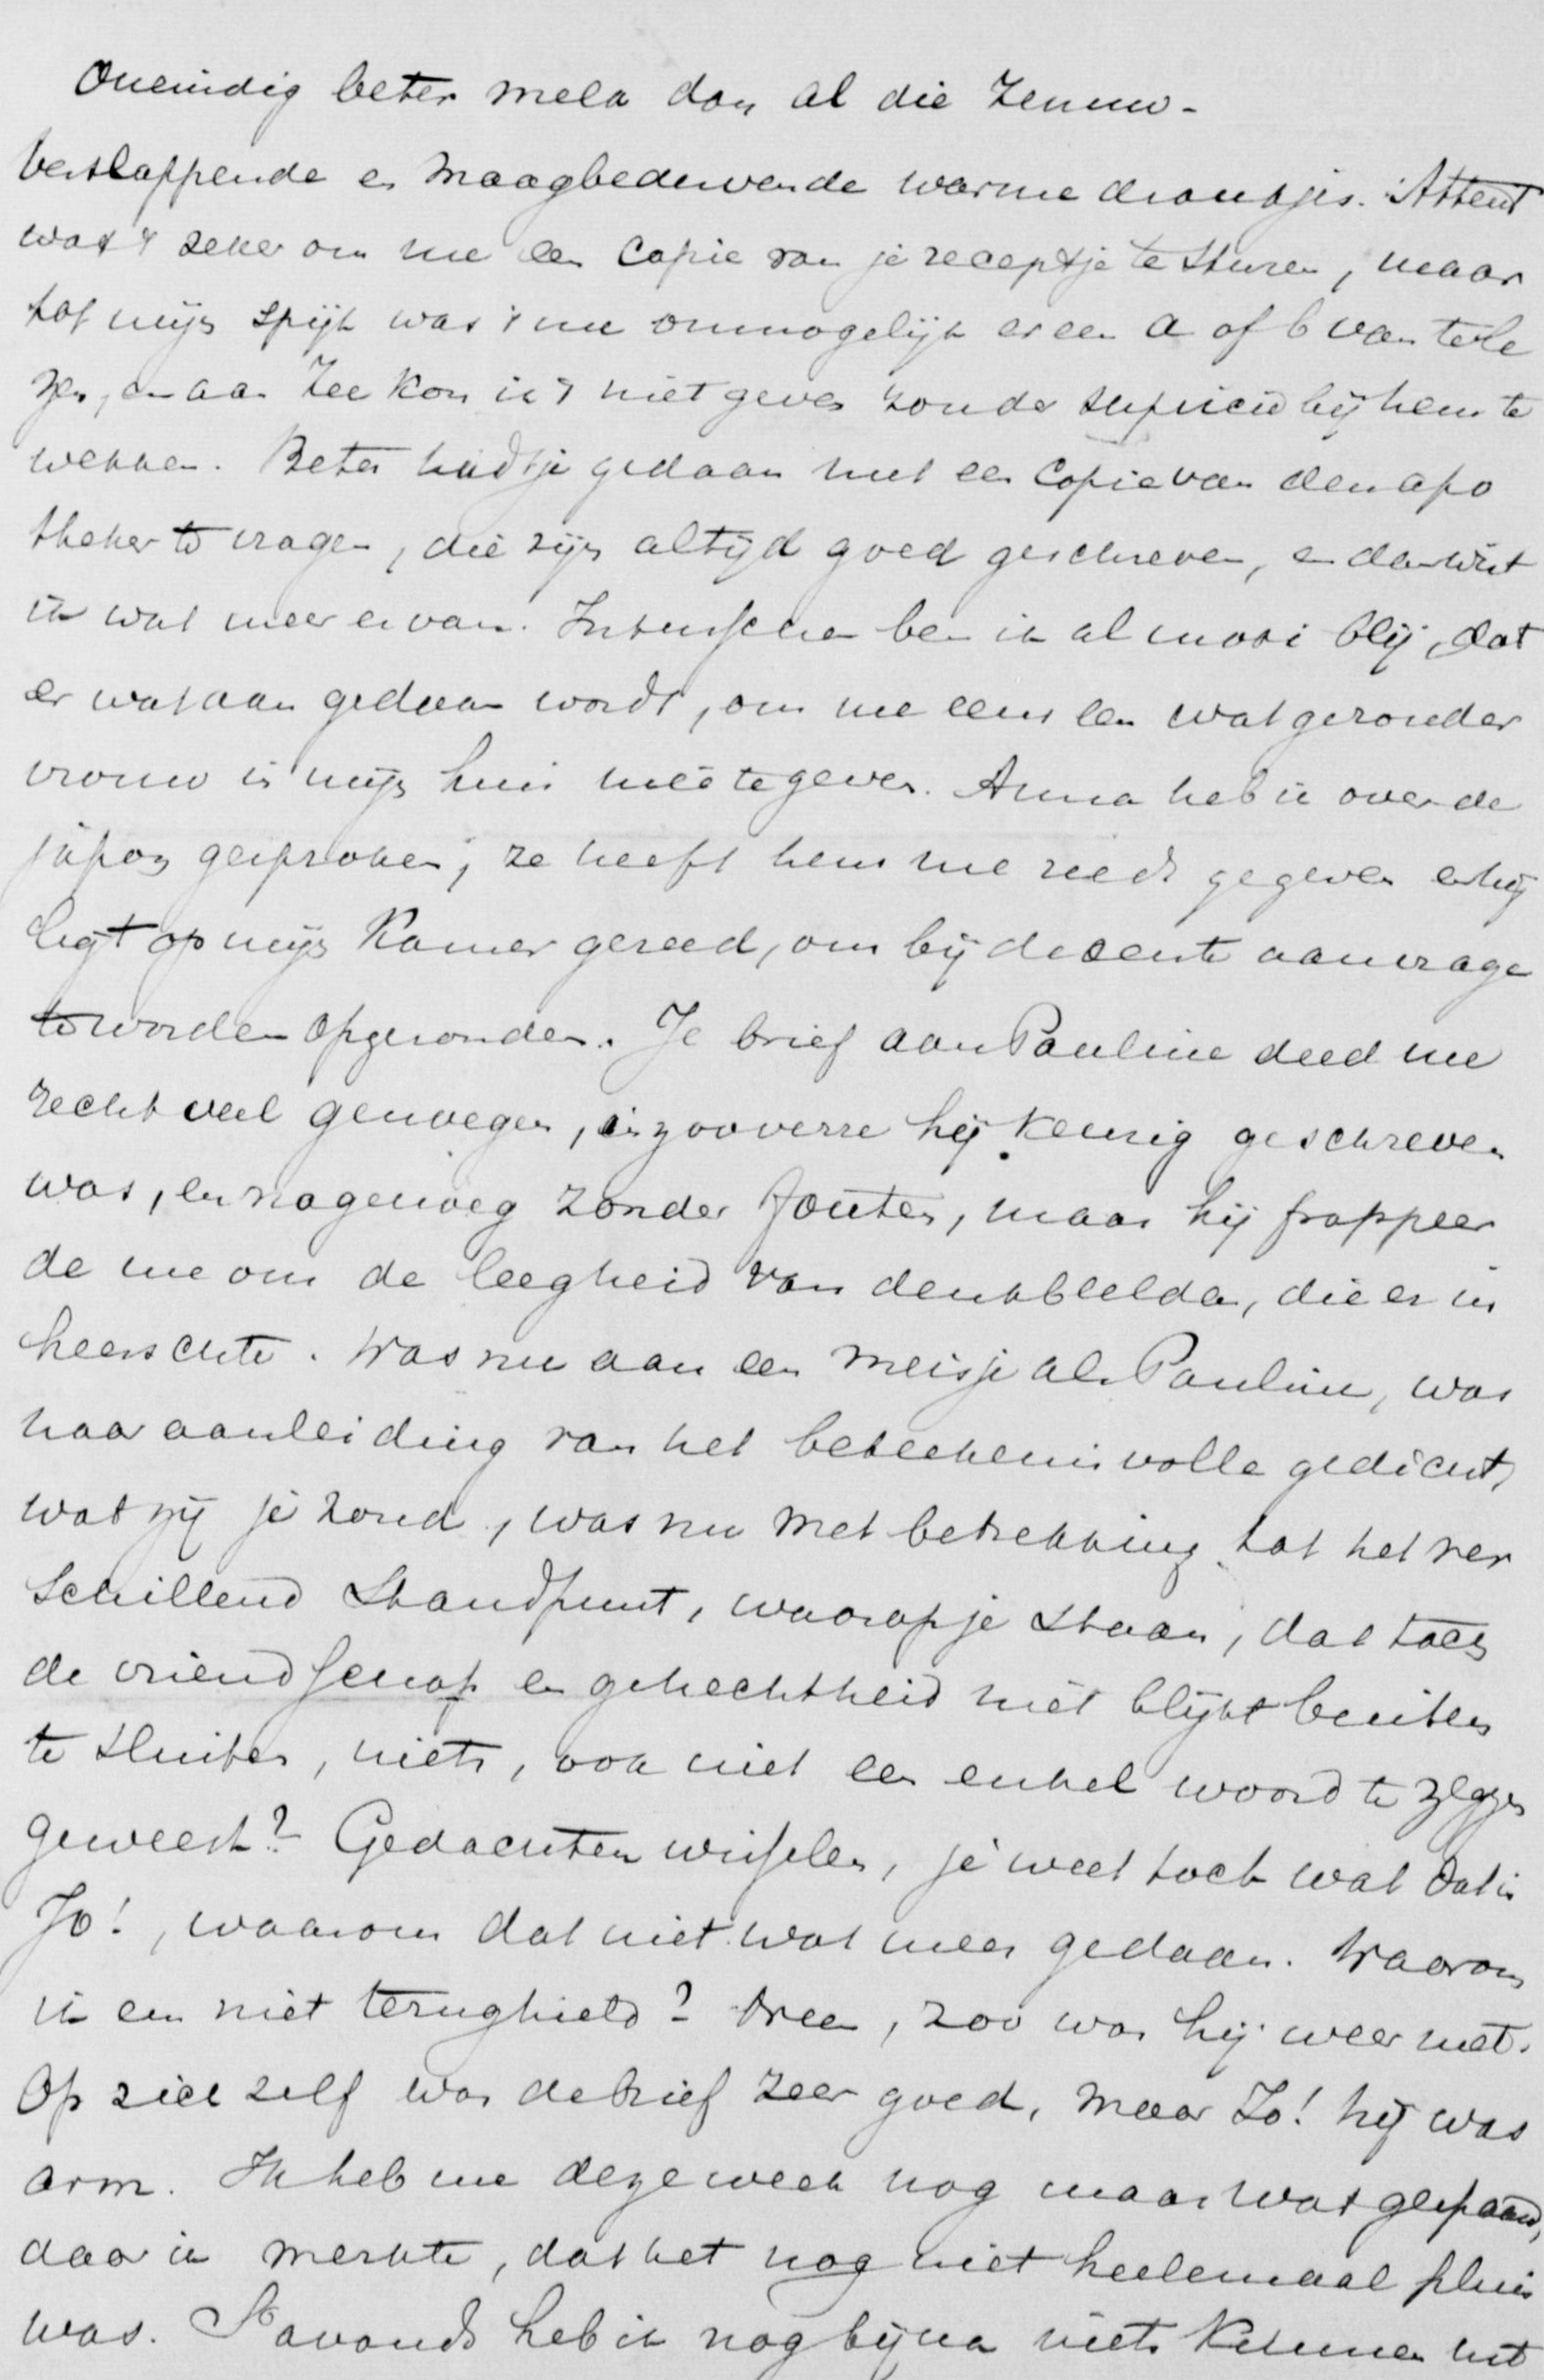 Oneindig beter melk dan al die zenuw-
verslappende en maagbedervende warme drankjes. Attent
was 't zeker om me een copie van je receptje te sturen, maar
tot mijn spijt was 't me onmogelijk er een a of b van te le
zen, en aan Zee kon ik 't niet geven zonder suspicie bij hem te
wekken. Beter hadt je gedaan met een copie van den apo
theker te vragen, die zijn altijd goed geschreven, en dan wist
ik wat meer ervan. Intusschen ben ik al mooi blij, dat
er wat aan gedaan wordt, om me eens een wat gezonder
vrouw in mijn huis meê te geven. Anna heb ik over de
japon gesproken; ze heeft hem me reeds gegeven en hij
ligt op mijn kamer gereed, om bij de eerste aanvrage
te worden opgezonden. Je brief aan Pauline deed me
recht veel genoegen, in zooverre hij keurig geschreven
was, en nagenoeg zonder fouten, maar hij frappeer
de me om de leegheid van denkbeelden, die er in
heerschte. Was nu aan een meisje als Pauline, was
naar aanleiding van het beteekenisvolle gedicht,
wat zij je zond, was nu met betrekking tot het ver
schillend standpunt, waarop je staan, dat toch
de vriendschap en gehechtheid niet blijkt buiten
te sluiten, niets, ook niet een enkel woord te zeggen
geweest? Gedachten wisselen, je weet toch wat dat is
Jo!, waarom dat niet wat meer gedaan. Waarom
ik en niet terughield? Neen, zoo was hij weer niet.
Op zich zelf was de brief zeer goed, maar Jo! hij was
arm. Ik heb me deze week nog maar wat gespaard,
daar ik merkte, dat het nog niet heelemaal pluis
was. 'S avonds heb ik nog bijna niets kunnen uit